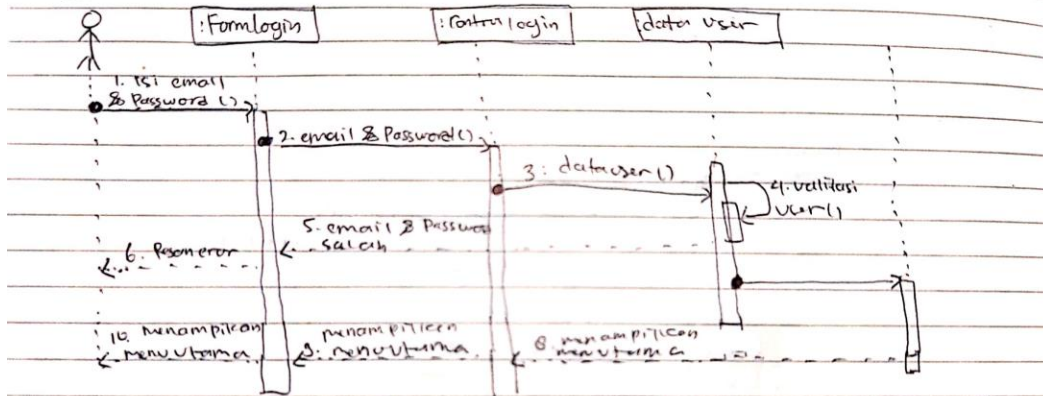 :Formlogin
:Control login
:data user
1. isi email
& Password ()
2. email & Password()
3: datauser()
4. validasi
user()
5. email & Password
salah
6. Pesan eror
8. menampilkan
menu utama
menampilkan
9. menu utama
10. menampilkan
menu utama